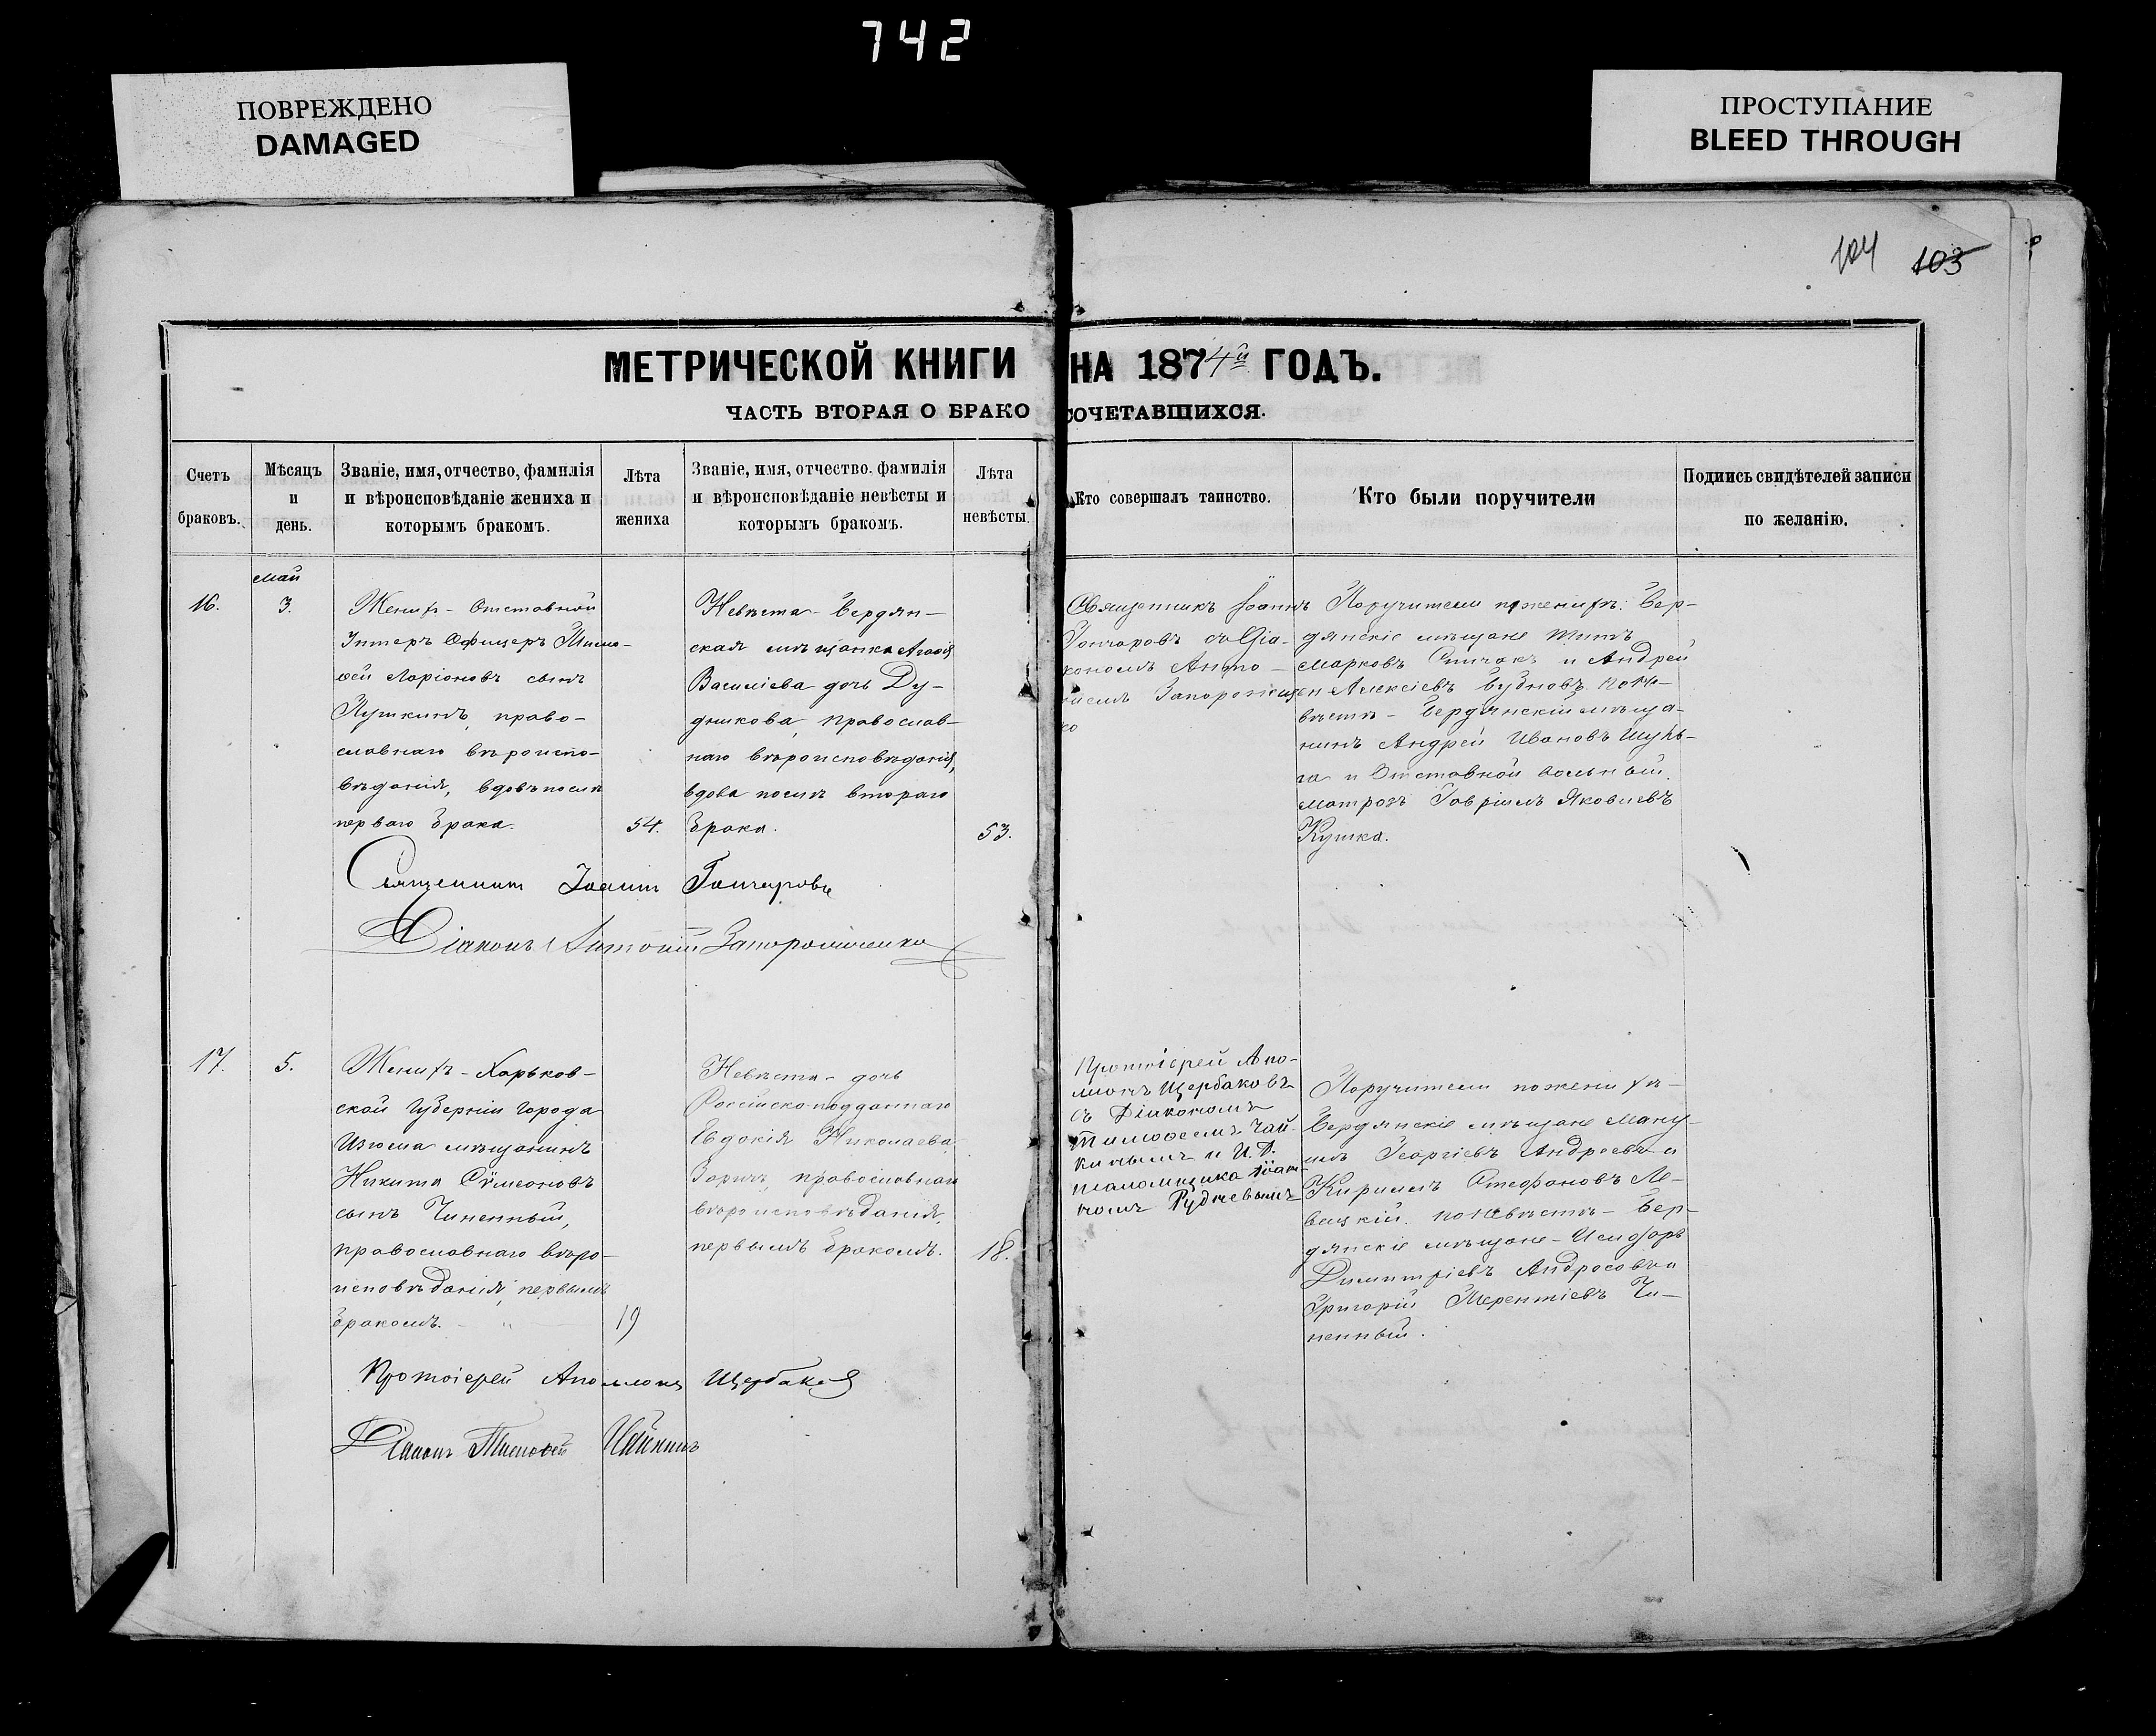 742
ПОВРЕЖДЕНО
DAMAGED
ПРОСТУПАНИЕ
BLEED THROUGH
104 103
МЕТРИЧЕСКОЙ КНИГИ НА 1874й ГОДЪ.
ЧАСТЬ ВТОРАЯ О БРАКОСОЧЕТАВШИХСЯ.
Счетъ
браковъ.
Мѣсяцъ
и
день.
Званіе, имя, отчество, фамилія
и вѣроисповѣданіе жениха и
которымъ бракомъ.
Лѣта
жениха
Званіе, имя, отчество. фамилія
и вѣроисповѣданіе невѣсты и
которымъ бракомъ.
Лѣта
невѣсты.
Кто совершалъ таинство.
Кто были поручители
Подпись свидѣтелей записи
по желанію.
16.
Май
3.
Женихъ - Отставной
Унтеръ Офицеръ Тимо-
ѳей Ларіоновъ сынъ
Пушкинъ, право-
славнаго вѣроиспо-
вѣданія, вдовъ послѣ
перваго брака.
54.
Невѣста - Бердян-
ская мѣщанка Агаѳія
Василіева дочь Ду-
дникова, православ-
наго вѣроисповѣданія,
вдова послѣ втораго
брака.
53.
Священникъ Іоаннъ
Гончаровъ съ Діа-
кономъ Анто-
ніемъ Запорожчен
ко
Поручители по женихѣ: Бер-
дянскіе мѣщане Титъ
Марковъ Спичакъ и Андрей
Алексіевъ Будновъ. по не-
вѣстѣ - Бердянскій мѣща-
нинъ Андрей Ивановъ Шуль-
га и Отставной вольный
матрозъ Гавріилъ Яковлевъ
Кушка.
Священникъ Іоаннъ Гончаровъ
Діаконъ Антоній Запорожченко
17.
5.
Женихъ - Харьков-
ской Губерніи города
Изюма мѣщанинъ
Никита Сѵмеоновъ
сынъ Чиненный,
православнаго вѣро-
исповѣданія, первымъ
бракомъ.
19
Невѣста - дочь
Россійско-подданнаго
Евдокія Николаева
Зоричъ, православнаго
вѣроисповѣданія,
первымъ бракомъ.
18.
Протоіерей Апо-
ллонъ Щербаковъ
съ Діакономъ
Тимоѳеемъ Чай-
кинымъ и И. Д.
псаломщика Діако-
номъ Рудневымъ
Поручители по женихѣ -
Бердянскіе мѣщане Ману-
илъ Георгіевъ Андреевъ и
Кириллъ Стефановъ Ле-
вицкій. по невѣстѣ - Бер-
дянскіе мѣщане - Исидоръ
Димитріевъ Андросовъ и
Григорій Терентіевъ Чи-
ненный.
Протоіерей Аполлонъ Щербаковъ
Діаконъ Тимоѳей Чайкинъ